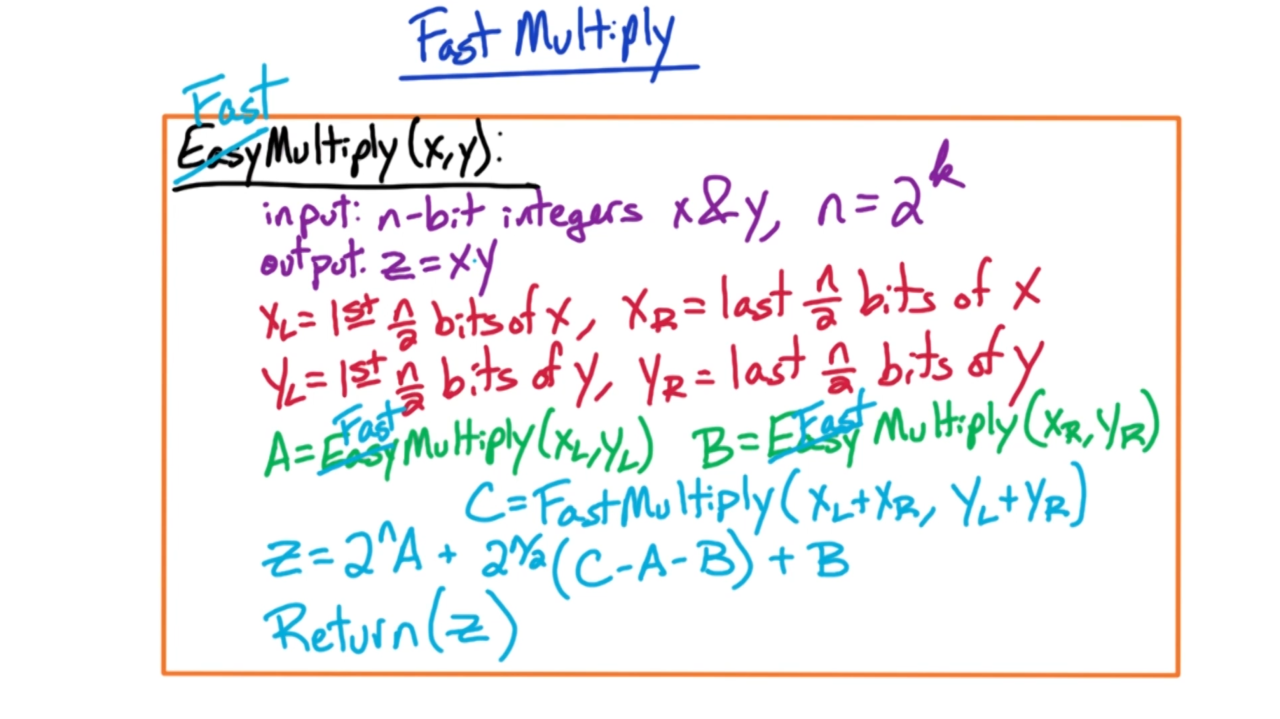 Fast Multiply
Fast
EasyMultiply(x,y):
input: n-bit integers x&y, n=2^k
output: z=x·y
x_L = 1st n/2 bits of x, x_R = last n/2 bits of x
y_L = 1st n/2 bits of y, y_R = last n/2 bits of y
Fast Fast
A = EasyMultiply(x_L,y_L) B = Easy Multiply(x_R,y_R)
C = FastMultiply(x_L+x_R, y_L+y_R)
z = 2^n A + 2^(n/2) (C-A-B) + B
Return(z)